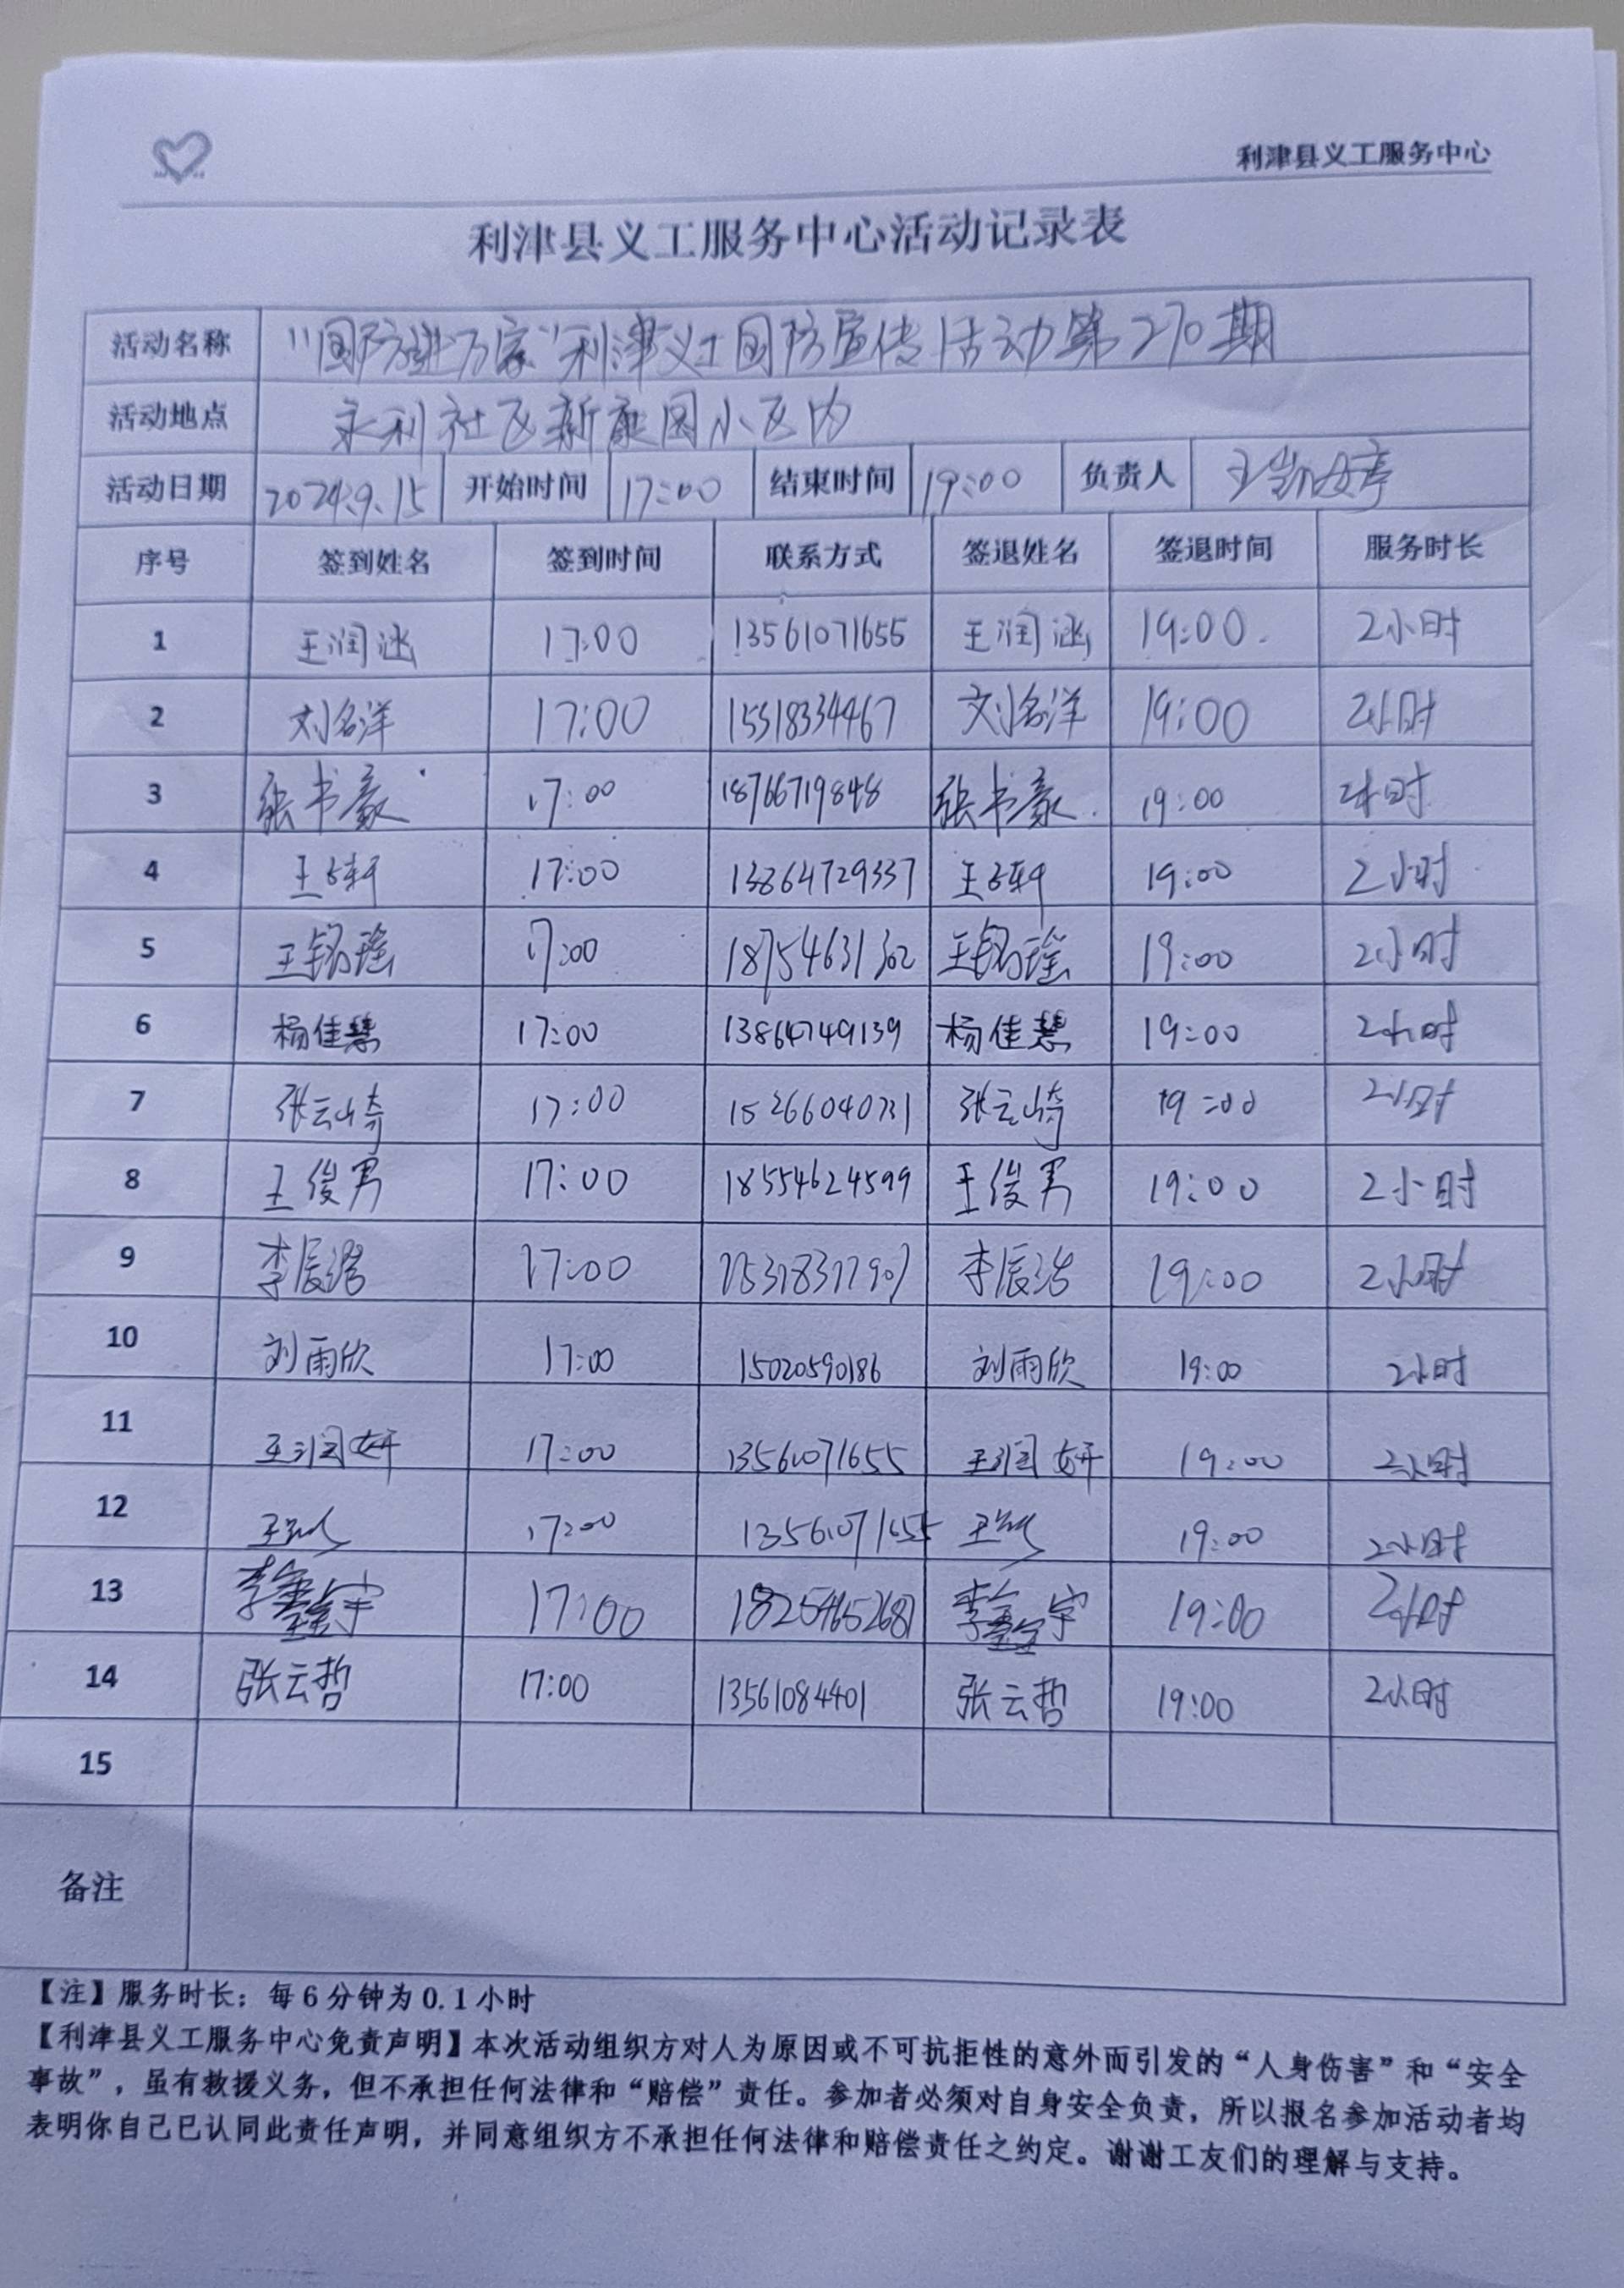 利津县义工服务中心
利津县义工服务中心活动记录表
活动名称 "国防进万家"利津义工国防宣传活动第270期
活动地点 永利社区新康园小区内
活动日期 2024.9.15 开始时间 17:00 结束时间 19:00 负责人 王
序号 签到姓名 签到时间 联系方式 签退姓名 签退时间 服务时长
1 王润涵 17:00 13561071655 王润涵 19:00 2小时
2 刘名洋 17:00 15318334467 刘名洋 19:00 2小时
3 张书豪 17:00 18766719848 张书豪 19:00 2小时
4 王轩 17:00 13864729337 王轩 19:00 2小时
5 王铭瑶 17:00 18754631302 王铭瑶 19:00 2小时
6 杨佳慧 17:00 13864749139 杨佳慧 19:00 2小时
7 张云崎 17:00 15266040731 张云崎 19:00 2小时
8 王俊男 17:00 18554624599 王俊男 19:00 2小时
9 李辰浩 17:00 李辰浩 19:00 2小时
10 刘雨欣 17:00 15020590186 刘雨欣 19:00 2小时
11 王润妍 17:00 13561071655 王润妍 19:00 2小时
12 王 17:00 13561071655 王 19:00 2小时
13 李鑫宇 17:00 18254652681 李鑫宇 19:00 2小时
14 张云哲 17:00 13561084401 张云哲 19:00 2小时
15
备注
【注】服务时长：每6分钟为0.1小时
【利津县义工服务中心免责声明】本次活动组织方对人为原因或不可抗拒性的意外而引发的“人身伤害”和“安全
事故”，虽有救援义务，但不承担任何法律和“赔偿”责任。参加者必须对自身安全负责，所以报名参加活动者均
表明你自己已认同此责任声明，并同意组织方不承担任何法律和赔偿责任之约定。谢谢工友们的理解与支持。